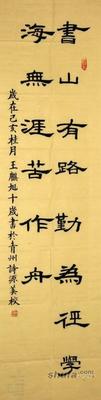 書山有路勤為徑學
海無涯苦作舟
歲在己亥桂月王麒旭十歲書於青州詩源美校